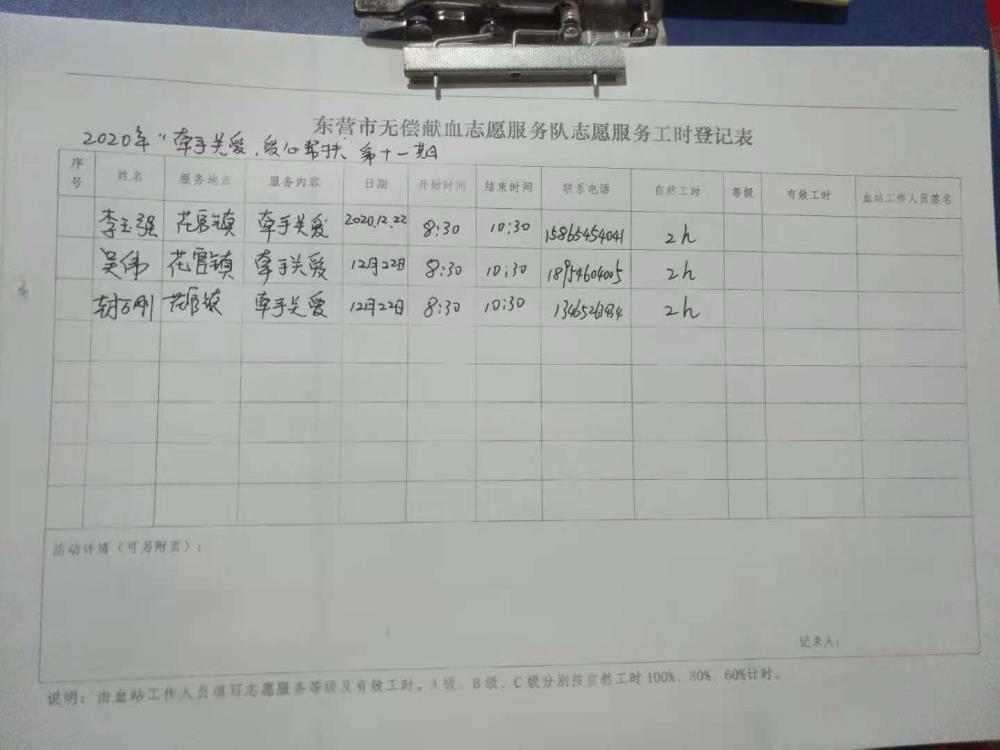 东营市无偿献血志愿服务队志愿服务工时登记表
2020年"牵手关爱,爱心帮扶"第十一期
序号 姓名 服务地点 服务内容 日期 开始时间 结束时间 联系电话 自然工时 等级 有效工时 血站工作人员签名
李玉强 花官镇 牵手关爱 2020.12.22 8:30 10:30 15865454041 2h
吴伟 花官镇 牵手关爱 12月22日 8:30 10:30 18954604005 2h
万刚 花官镇 牵手关爱 12月22日 8:30 10:30 2h
活动详情(可另附页):
记录人:
说明:由血站工作人员填写志愿服务等级及有效工时。A级、B级、C级分别按自然工时100%、80%、60%计时。